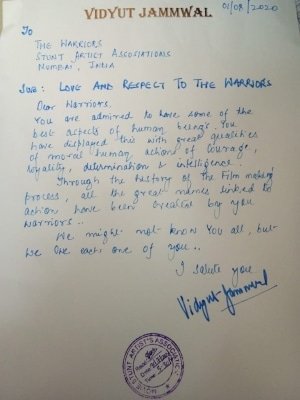 VIDYUT JAMMWAL
01/08/2020
To
THE WARRIORS
STUNT ARTIST ASSOCIATIONS
MUMBAI, INDIA
SUB: LOVE AND RESPECT TO THE WARRIORS
Dear Warriors,
You are admired to have some of the
best aspects of human beings. You
have displayed this with great qualities
of moral human action of courage,
loyality, determination & intelligence.
Through the history of the Film making
process, all the great names linked to
action have been created by you
warriors..
We might not know you all, but
we owe each one of you..
I salute you
Vidyut Jammwal
STUNT ARTIST'S ASSOCIATION